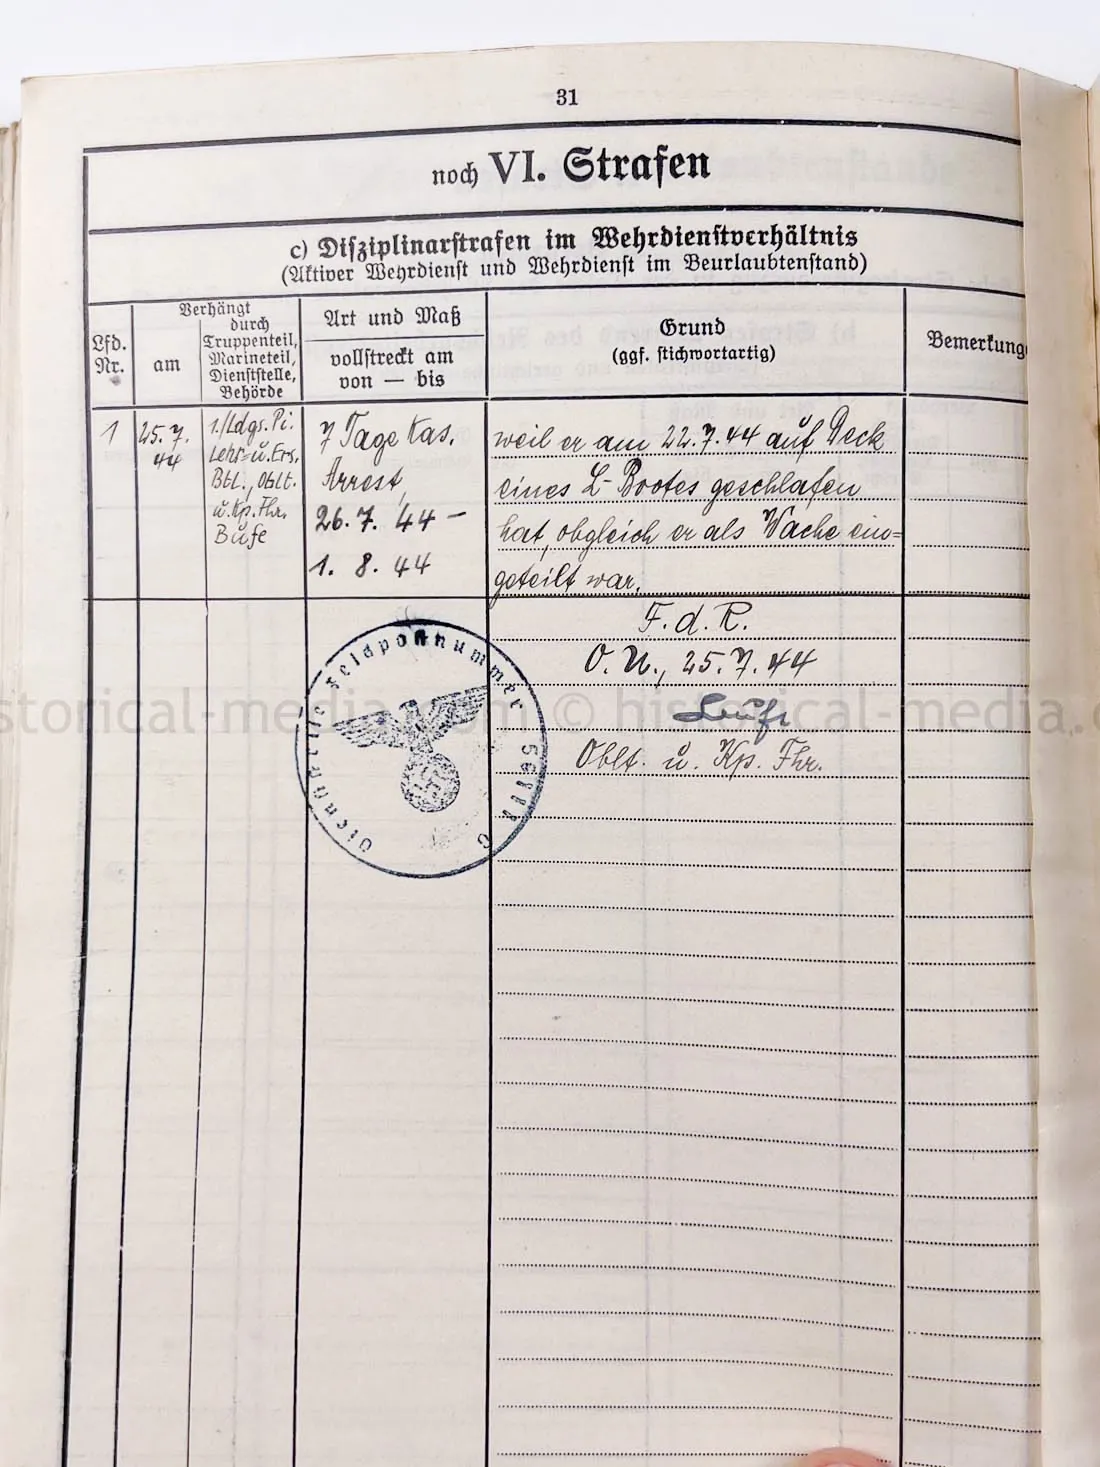 31
noch VI. Strafen
c) Disziplinarstrafen im Wehrdienstverhältnis
(Aktiver Wehrdienst und Wehrdienst im Beurlaubtenstand)
Lfd.
Nr.
Verhängt
am
durch
Truppenteil,
Marineteil,
Dienststelle,
Behörde
Art und Maß
vollstreckt am
von — bis
Grund
(ggf. stichwortartig)
Bemerkung
1
25.7.
44
1./Ldgs. Pi.
Lehr- u. Ers.
Btl., Oblt.
u. Kp. Fhr.
Bufe
7 Tage Kas.
Arrest,
26. 7. 44 –
1. 8. 44
weil er am 22.7.44 auf Deck
eines L-Bootes geschlafen
hat, obgleich er als Wache ein=
geteilt war.
F. d. R.
O. U., 25.7.44
Oblt. u. Kp. Fhr.
Dienststelle Feldpostnummer
historical-media.com © historical-media.c